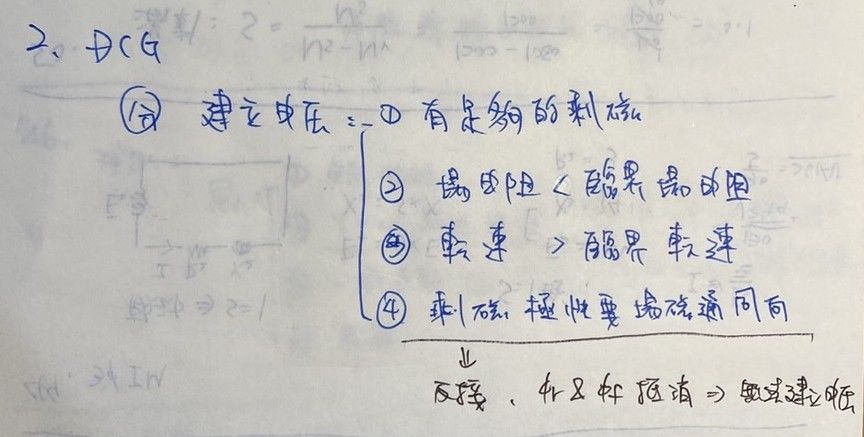 2. DCG
分 建立电压:① 有足夠的剩磁
② 場电阻 < 臨界場电阻
③ 転速 > 臨界転速
④ 剩磁極性要場磁通同向
⇓
反接、φr & φf 抵消 ⇒ 無法建立电压